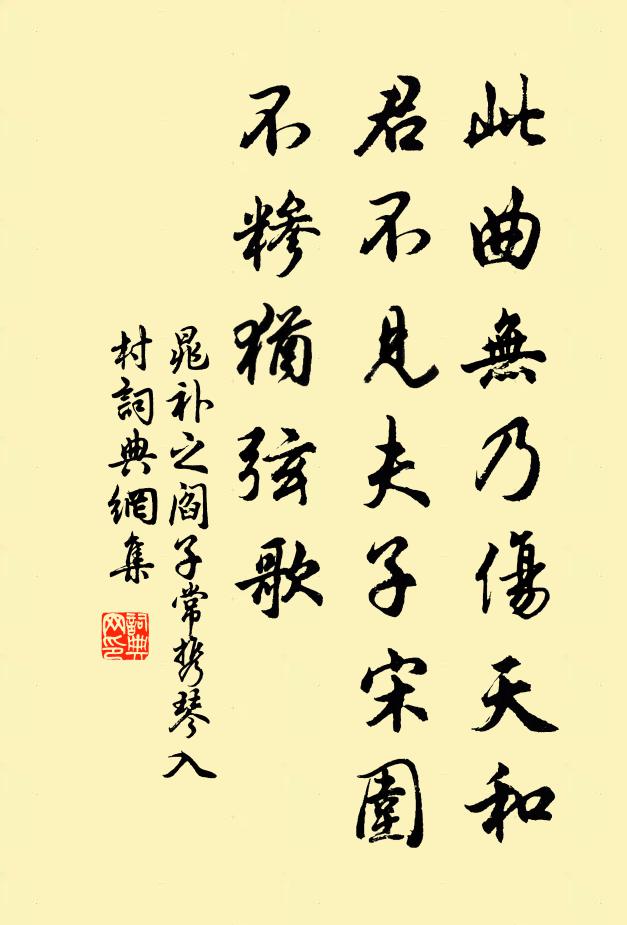 此曲無乃傷天和
君不見夫子宋圍
不糝猶弦歌
晁补之阎子常携琴入
村詞典網集
詞典网印